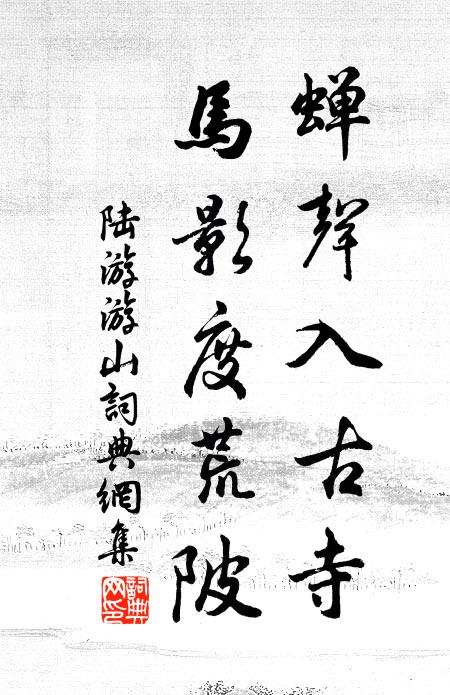 蝉聲入古寺
馬影度荒陂
陆游游山詞典網集
詞典网印